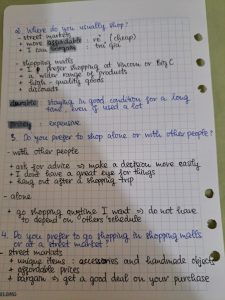 2) Where do you usually shop?
- street markets
+ more affordable : rẻ (cheap)
+ I can bargain : trả giá
- shopping malls
+ I prefer shopping at Vincom or Big C
+ a wider range of products
+ high-quality goods
+ discounts
durable : staying in good condition for a long
time, even if used a lot
: expensive
3. Do you prefer to shop alone or with other people?
- with other people
+ ask for advice ⇒ make a decision more easily
+ I don't have a great eye for things
+ hang out after a shopping trip
- alone
+ go shopping anytime I want ⇒ do not have
to depend on others' schedule
4. Do you prefer to go shopping in shopping malls
or at a street market?
- street markets
+ unique items : accessories and handmade objects
+ affordable prices
+ bargain ⇒ get a good deal on your purchase